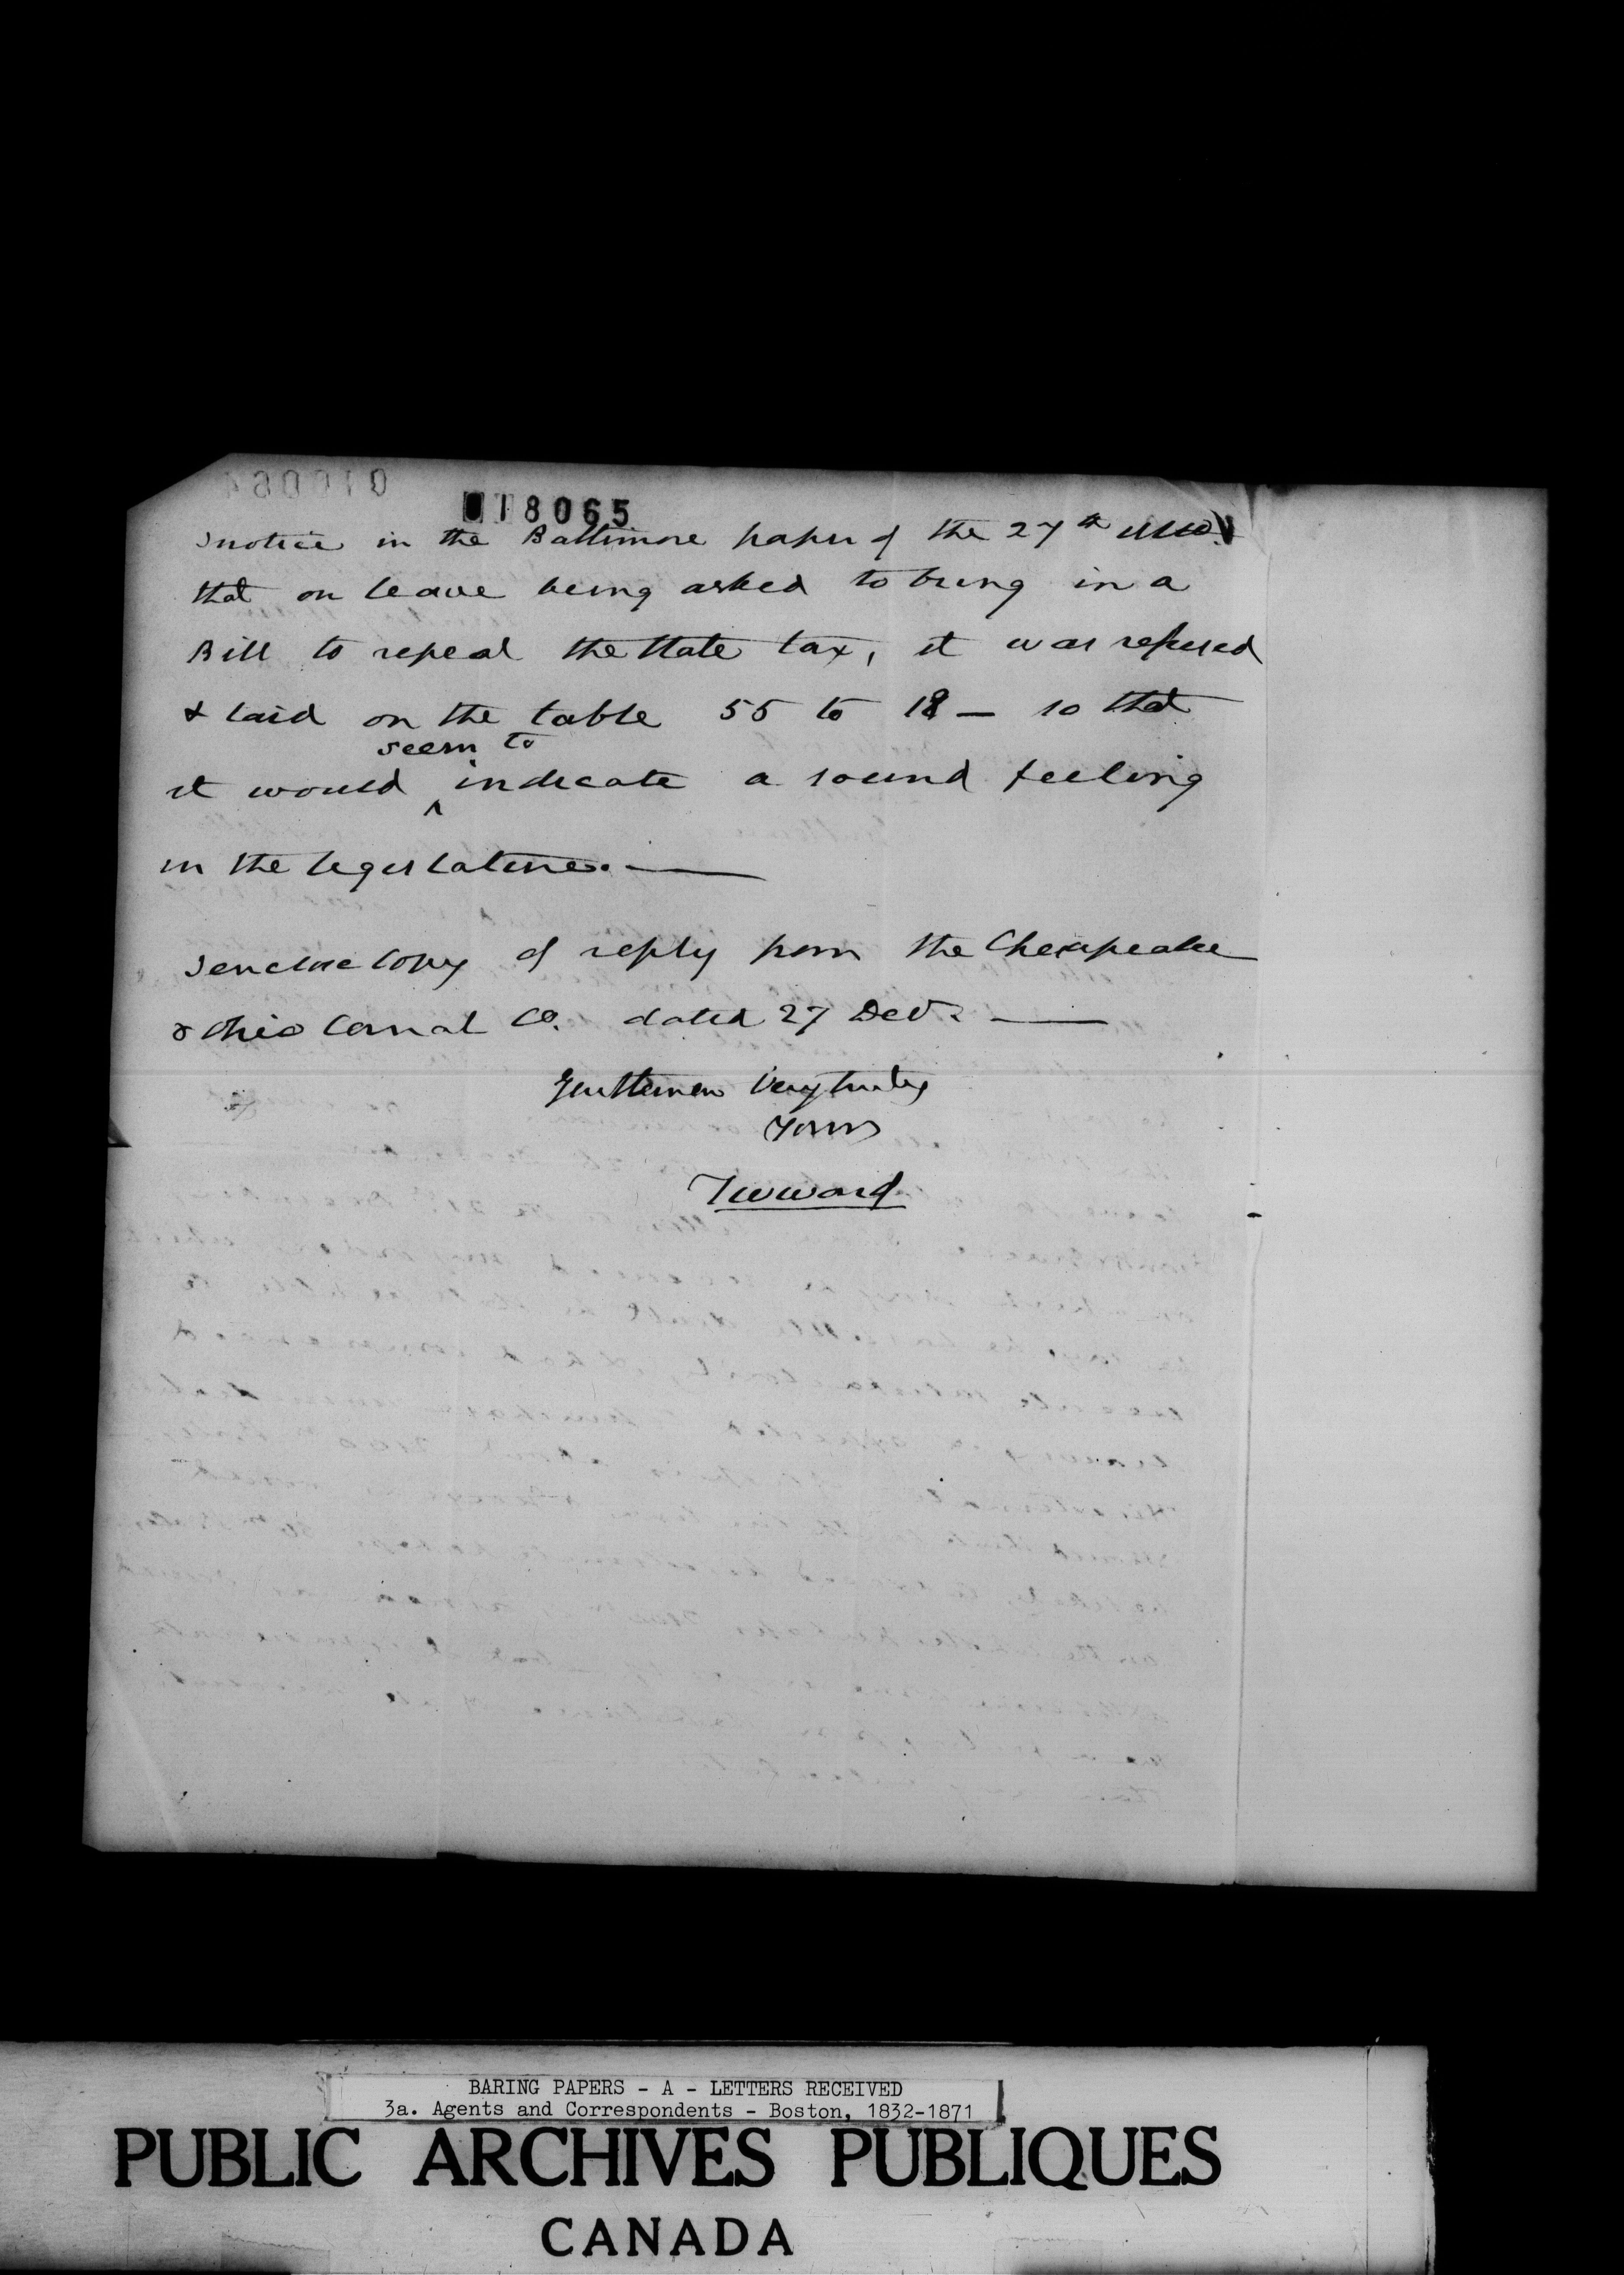 018065
I notice in the Baltimore paper of the 27th ulto.
that on leave being asked to bring in a
Bill to repeal the State tax, it was refused
& laid on the table 55 to 18 — so that
seem to
it would ^ indicate a sound feeling
in the legislature. —
I enclose copy of reply from the Chesapeake
& Ohio Canal Co. dated 27 Decr. —
Gentlemen Very truly
Yours
TWWard
BARING PAPERS - A - LETTERS RECEIVED
3a. Agents and Correspondents - Boston, 1832-1871
PUBLIC ARCHIVES PUBLIQUES
CANADA